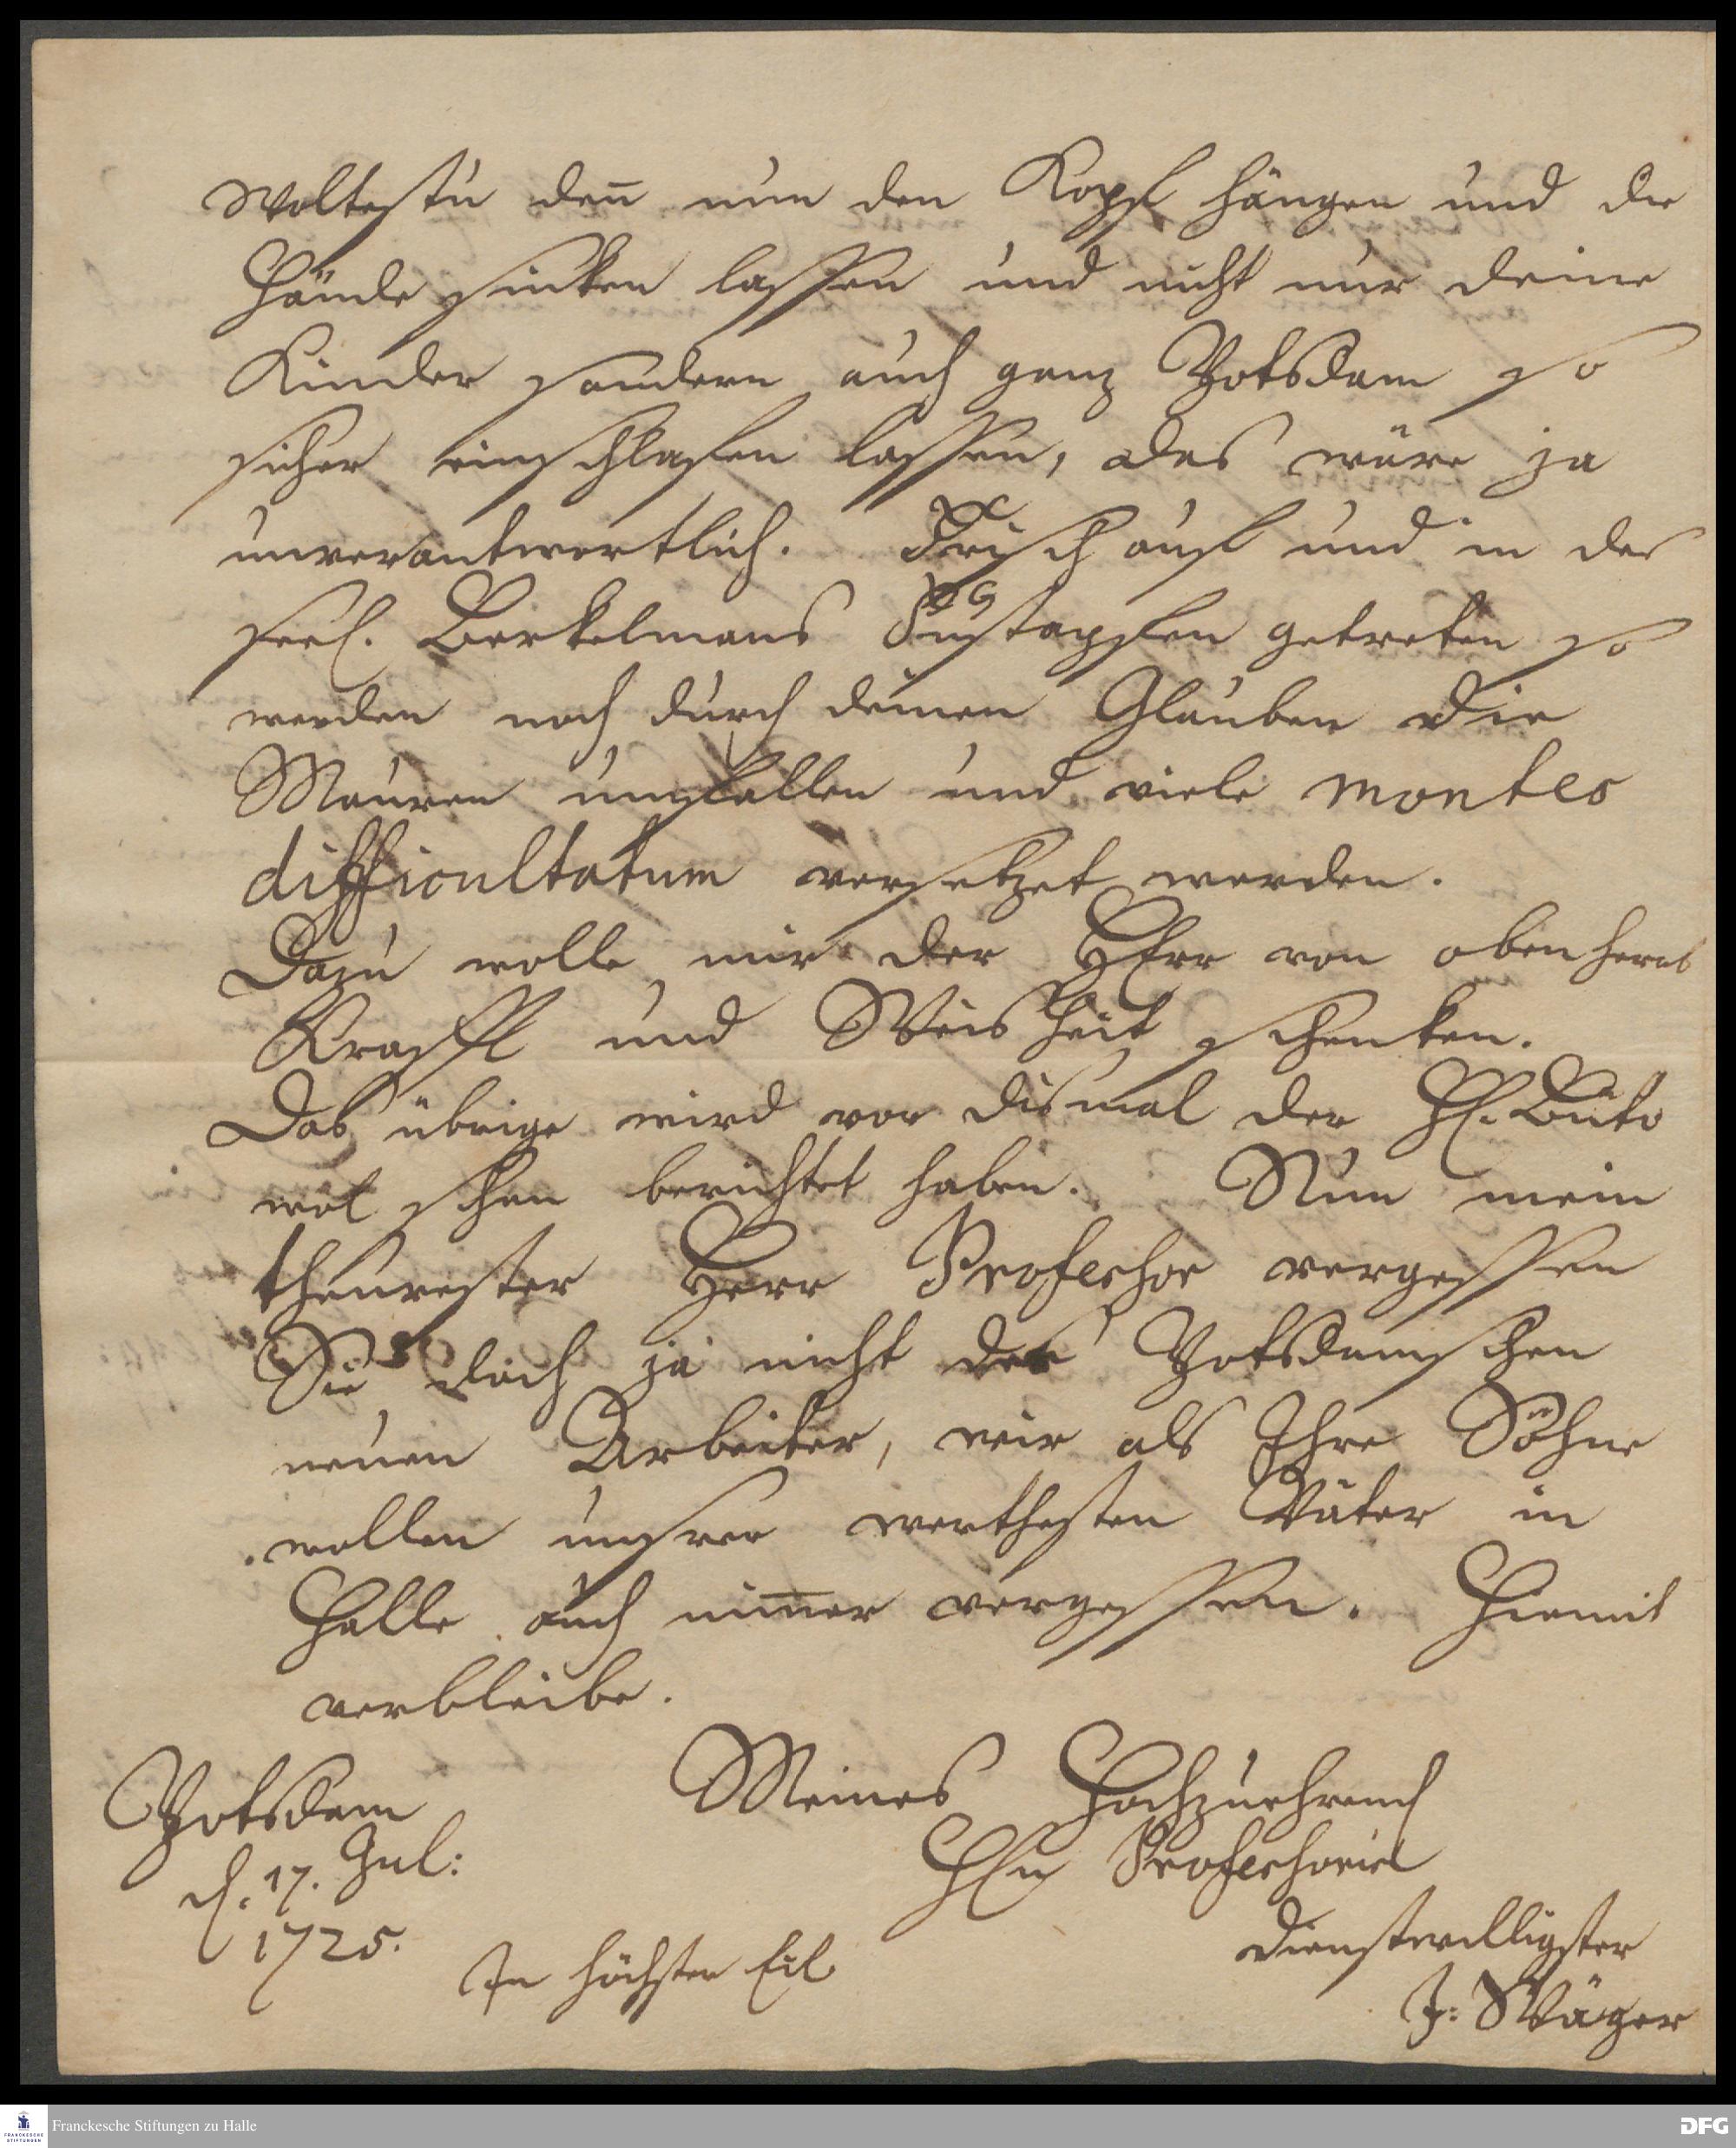 Woltestu deñ nun den Kopf hängen und die
Hände sincken lassen und nicht nur deine
Kinder sondern auch ganz Potsdam so
sicher einschlafen lassen, das wäre ja
unverantwortlich. Frisch auf und in des
seel. Berkelmans Fustapfen getreten so
werden noch durch deinen Glauben die
Mauren umfallen und viele montes
difficultatum versetzet werden.
Dazu wolle mir der HErr von oben herab
Krafft und Weisheit schencken.
Das übrige wird vor dismal der H.
wol schon berichtet haben. Nun mein
theurester Herr Professor vergessen
Sie doch ja nicht der Potsdamschen
neuen Arbeiter, wir als Ihre Söhne
wollen unsrer werthesten Väter in
Halle auch nim̄er vergessen. Hiemit
verbleibe.
Potsdam
d. 17. Jul:
1725.
Meines Hochzuehrend
HEn Professoris
In höchster Eil
dienstwilligster
J: Wäger
Franckesche Stiftungen zu Halle
FRANCKESCHE
STIFTUNGEN
DFG